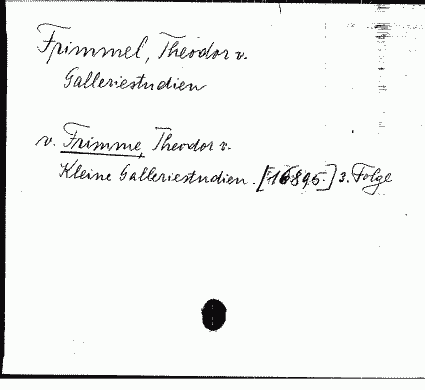 Frimmel, Theodor v.
Galleriestudien
v. Frimme, Theodor v.
Kleine Galleriestudien. [16895] 3. Folge